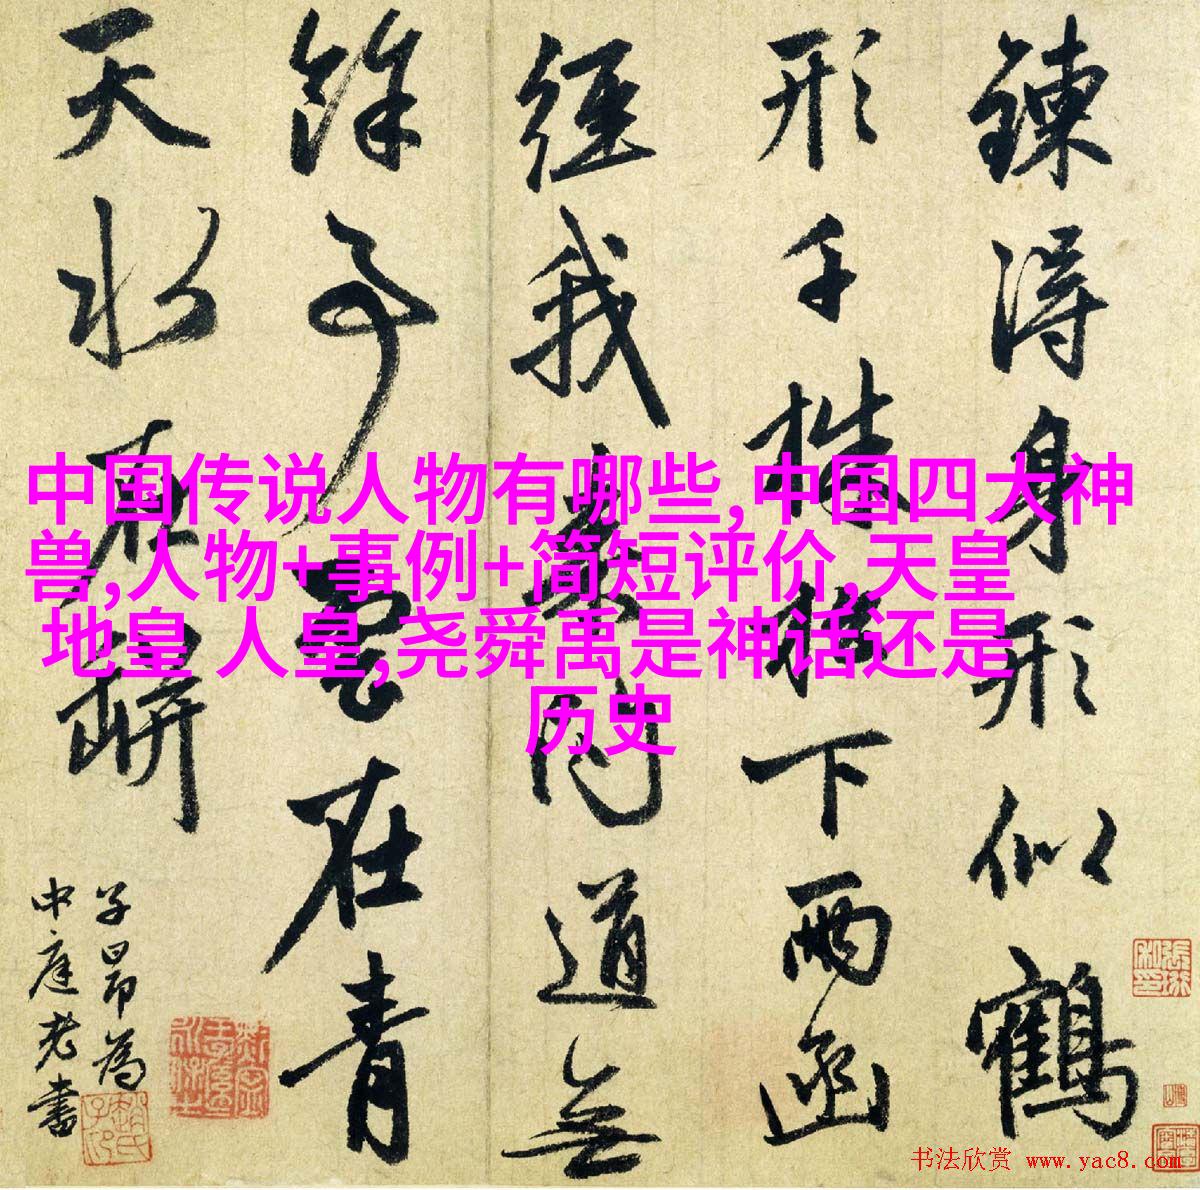 鍊得身形似鶴
形千株松下兩函
經我来問道無
餘說雲在青
天水在瓶
子昂為
中庭老書
中国传说人物有哪些,中国四大神
兽,人物+事例+简短评价,天皇
地皇 人皇,尧舜禹是神话还是
历史
书法欣赏 www.yac8.com